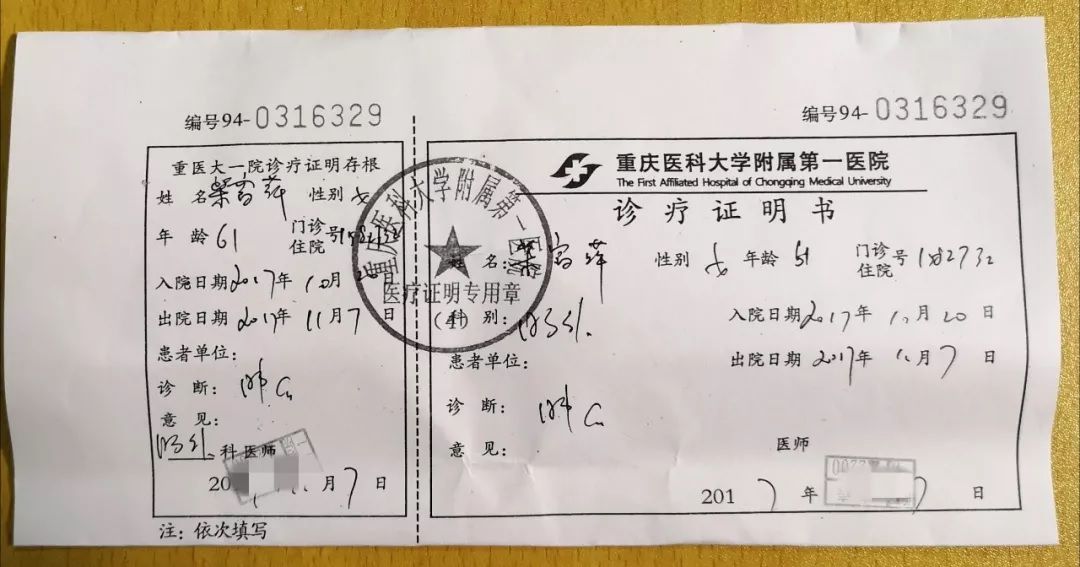 编号94-0316329
重医大一院诊疗证明存根
姓 名 梁富萍 性别 女
年 龄 61 门诊 住院 号
入院日期 2017年 10月 20日
出院日期 2017年 11月 7日
患者单位:
诊 断: 肺Ca
意 见:
胸外 科医师
月 7 日
注: 依次填写
编号94-0316329
重庆医科大学附属第一医院
The First Affiliated Hospital of Chongqing Medical University
诊 疗 证 明 书
姓 名: 梁富萍 性别 女 年龄 61 门诊 住院 号 182732
科 别: 胸外. 入院日期 2017年 10月 20日
患者单位: 出院日期 2017年 11月 7日
诊 断: 肺Ca
意 见: 医师
2017 年 7 日
重庆医科大学附属第一医院
医疗证明专用章
(4)